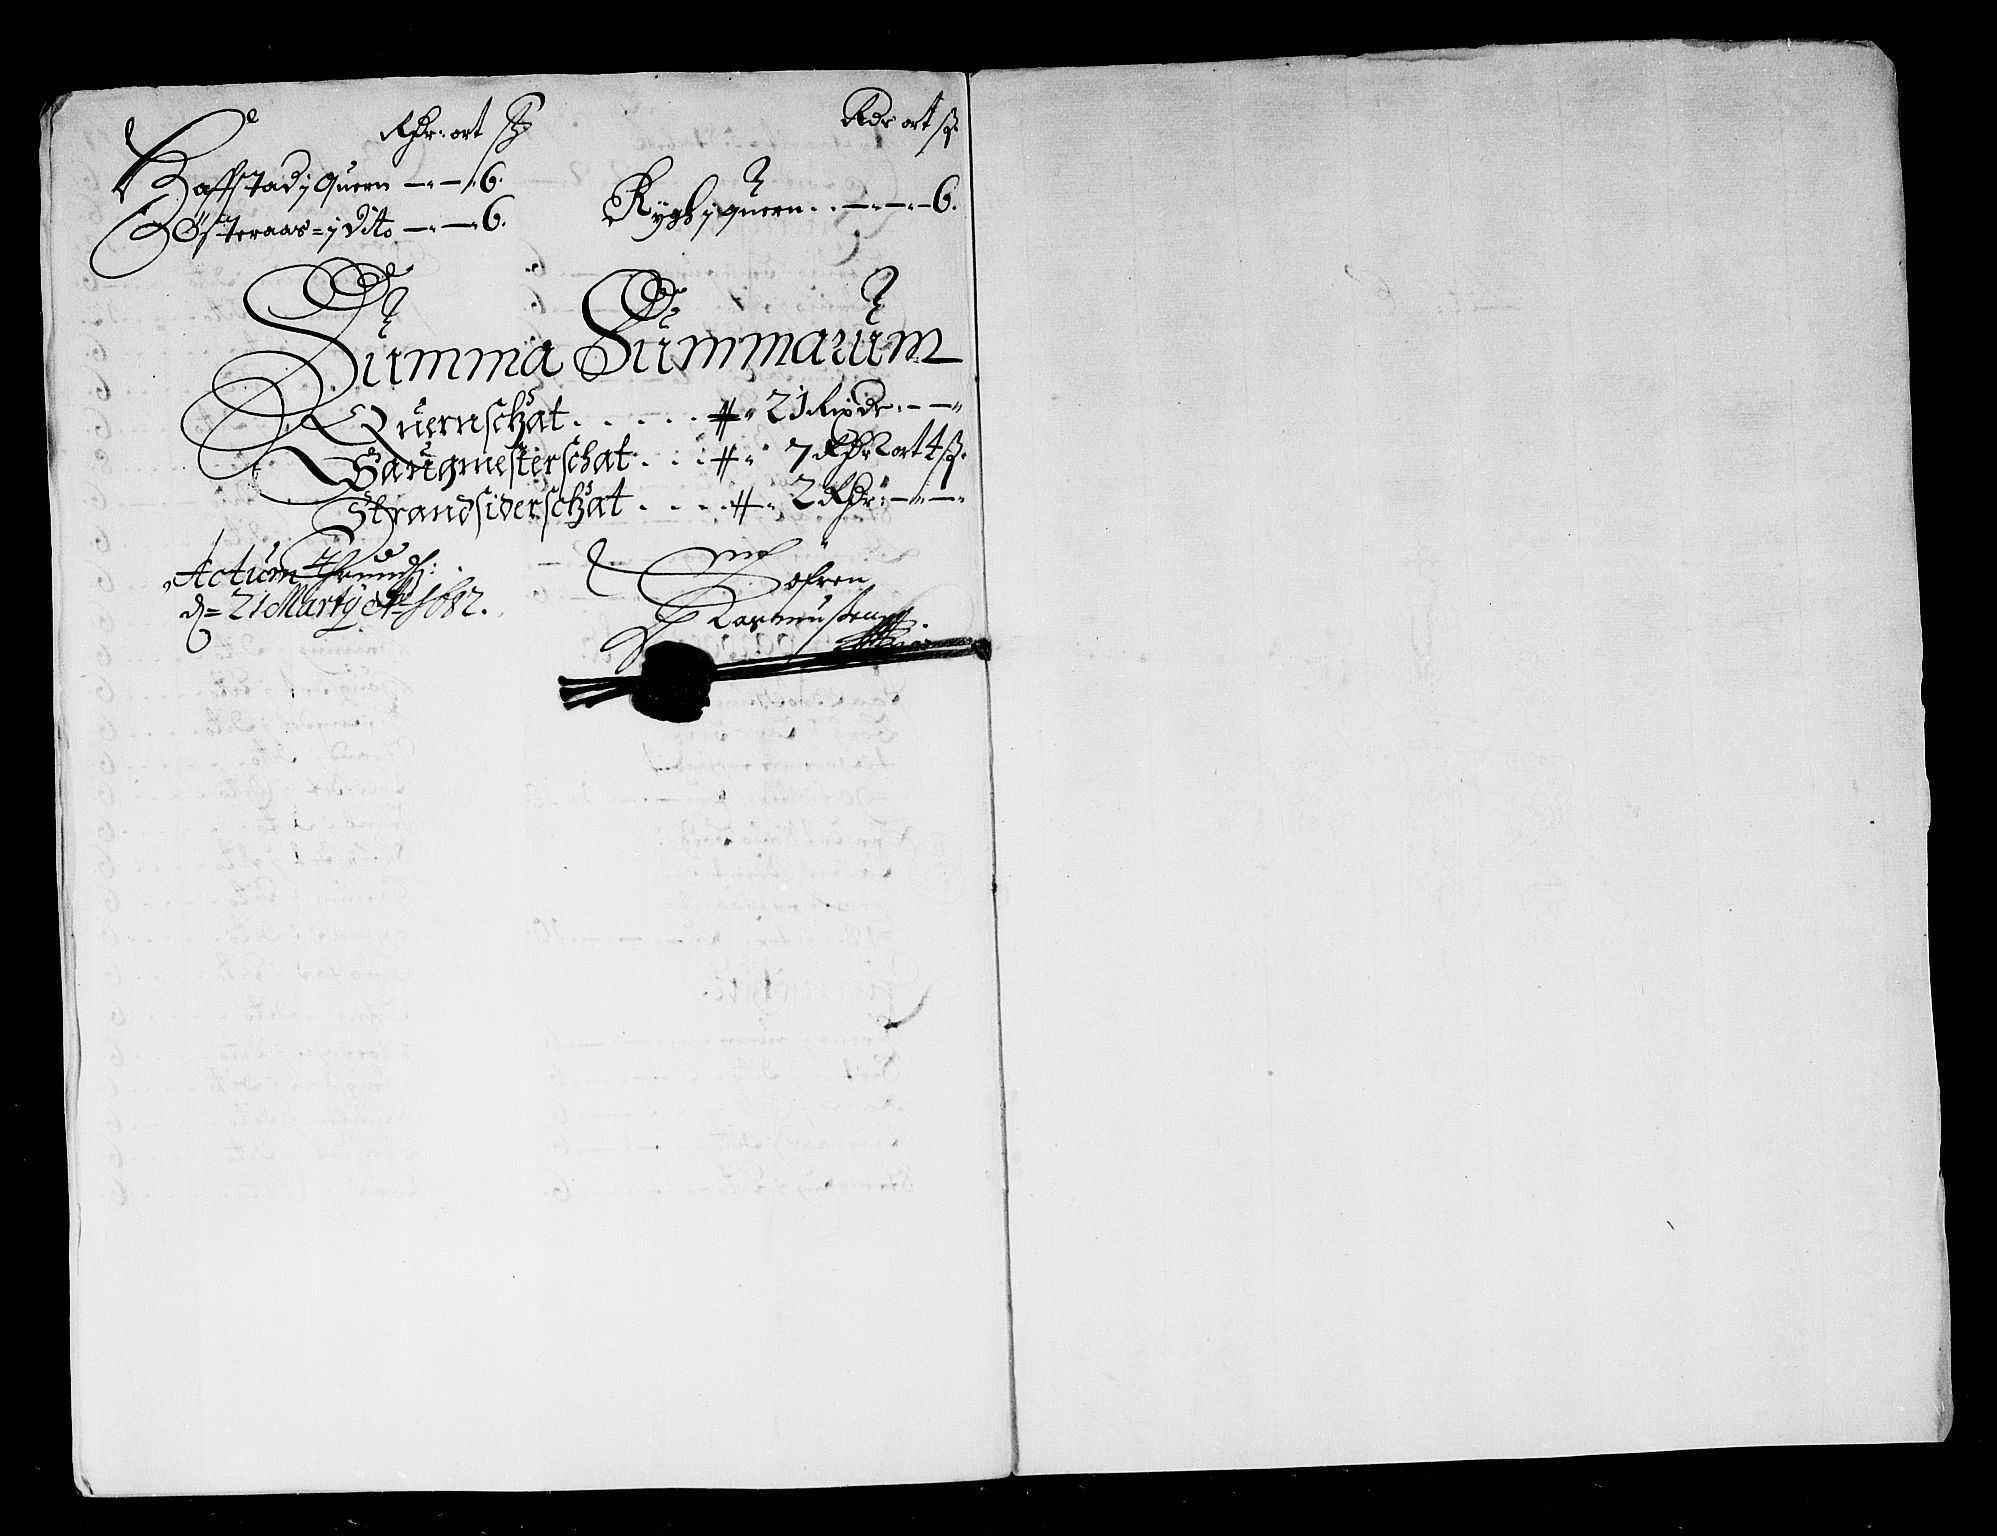 Rdr: ort ß
Haffstad j Quern — " — " 6.
Østeraas = j dito — " — 6.
Rdr ort ß.
Rygh j quern . . — " — " — 6.
Summa Summarum
Quernschat . . . . . . 21 Rixdr: — — "
Saugmesterschat . . . . 7 Rdr 2 ort 4 ß.
Strandsiderschat . . . . 2 Rdr: — " — "
Actum Thrundh:
d= 21 Marty Ao 1682.
Søfren
Rasmussen